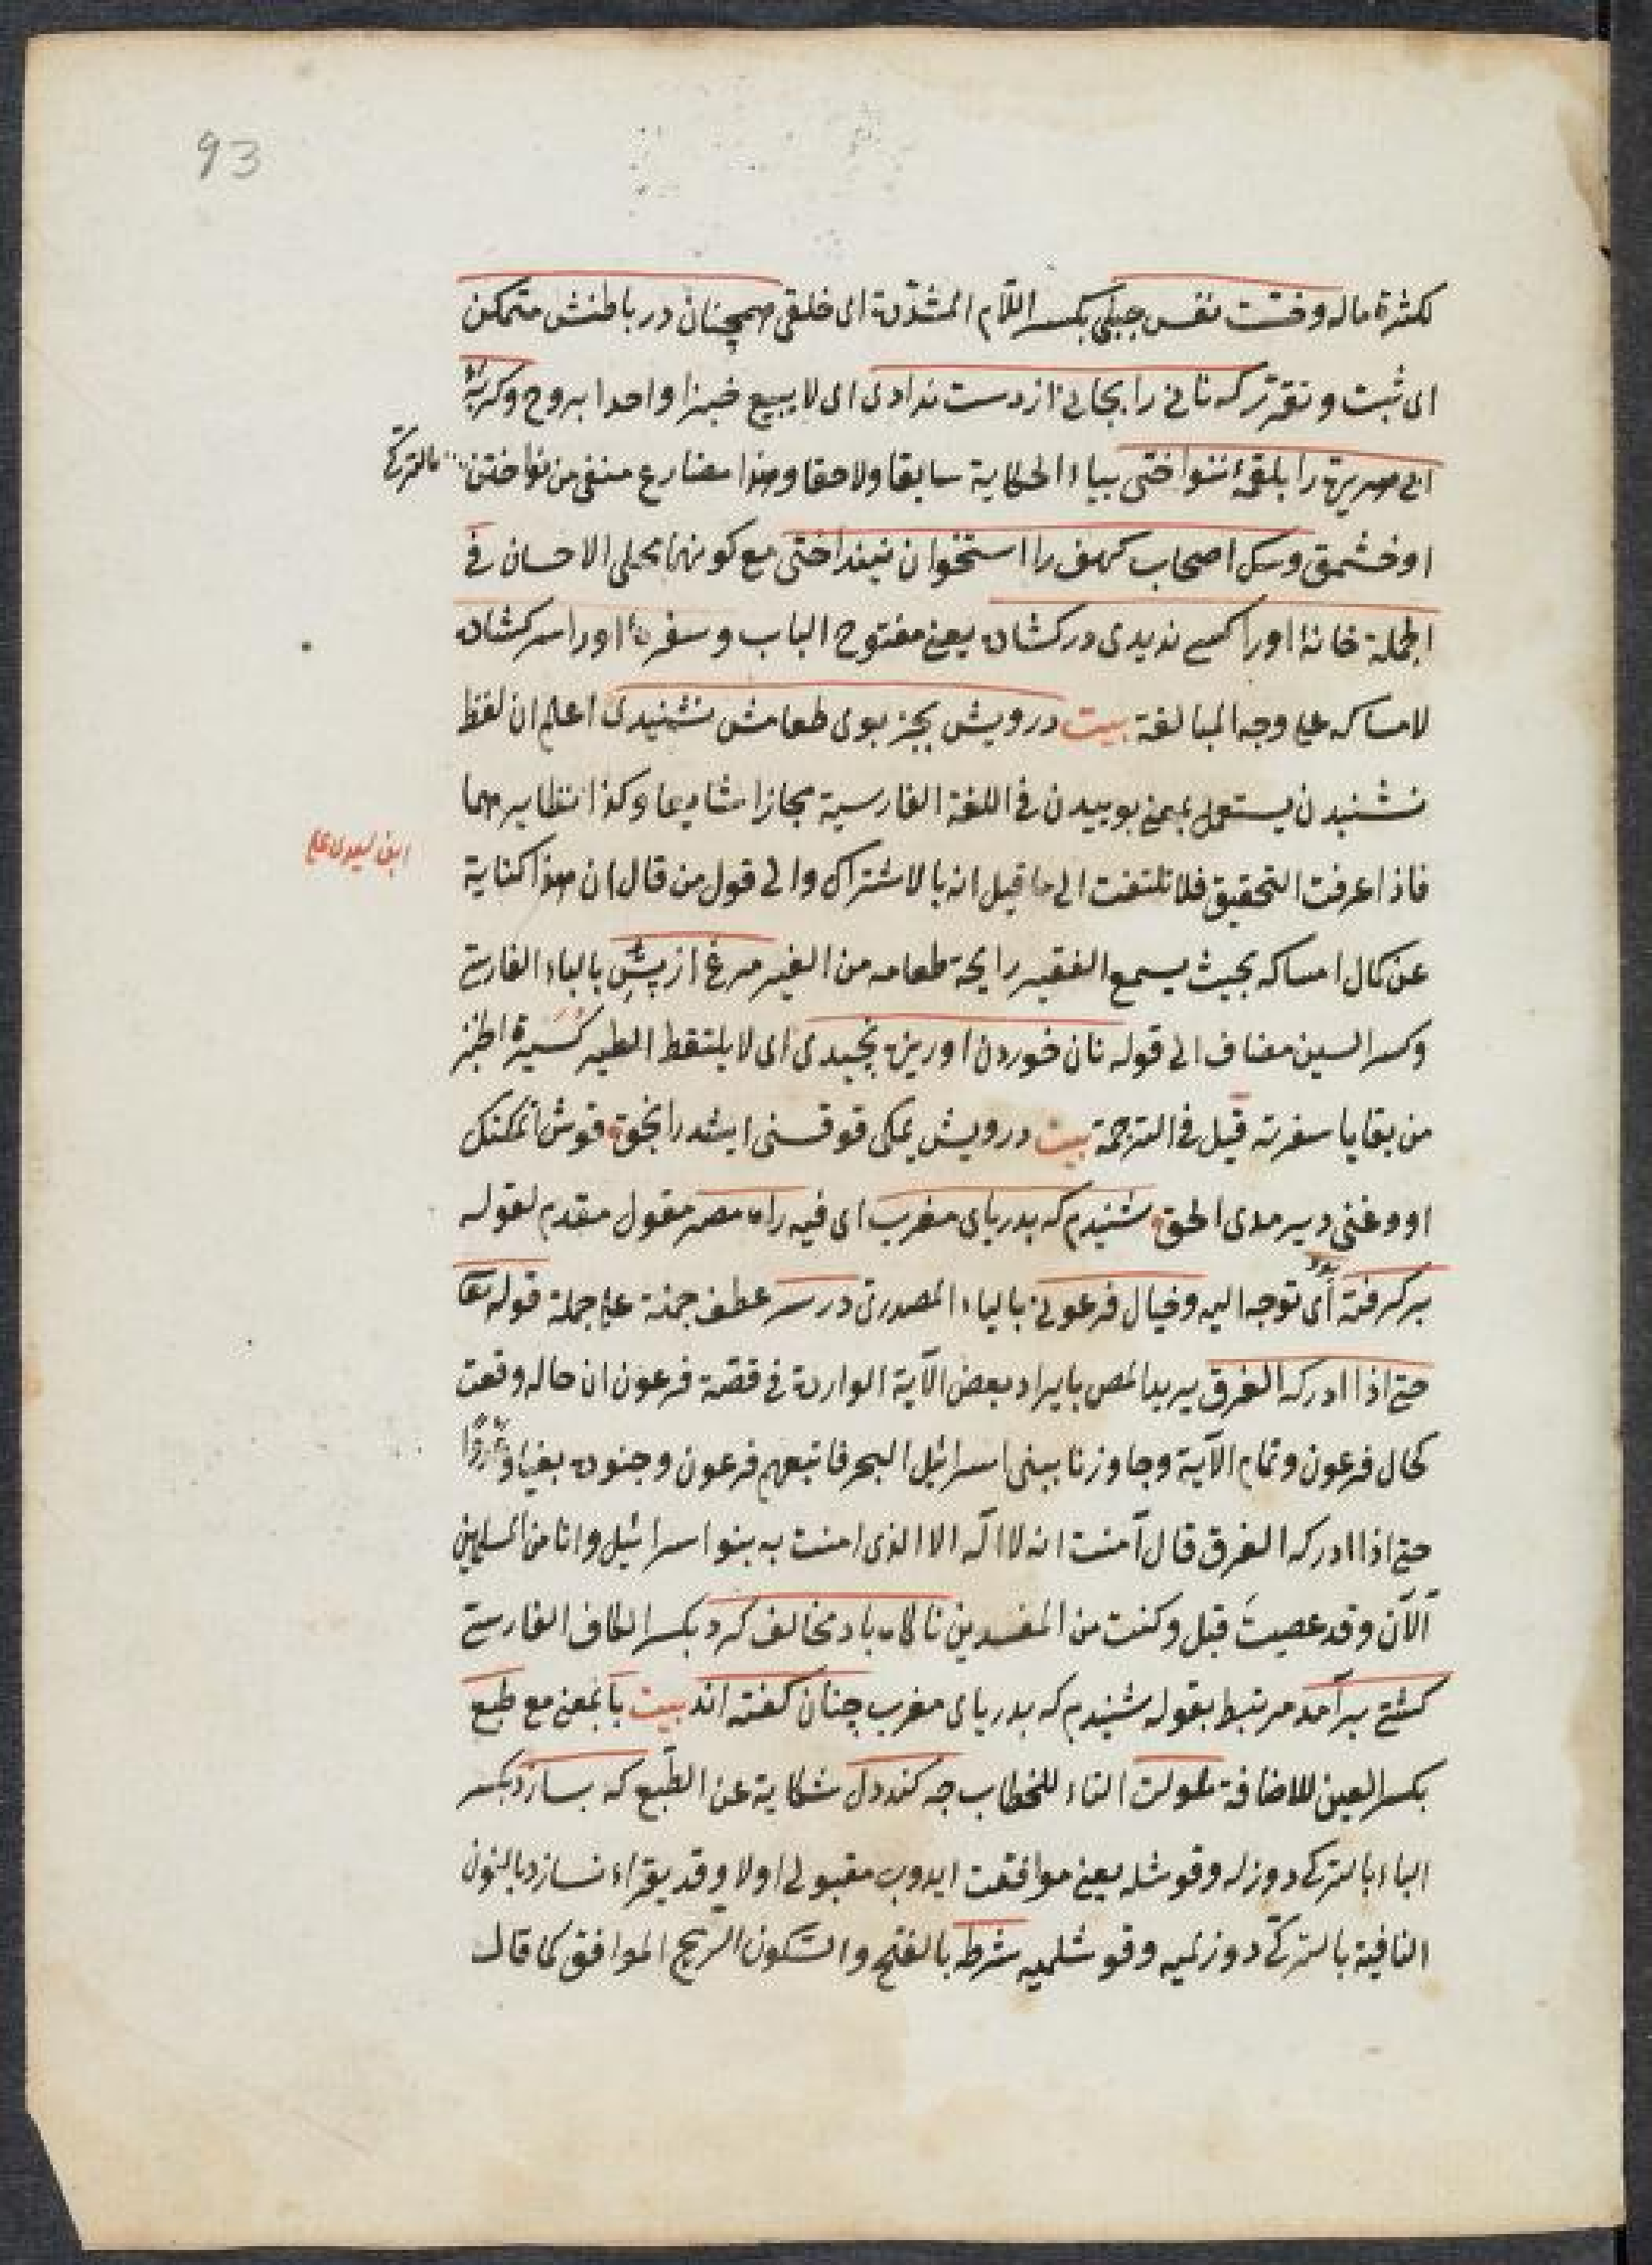 93
لكثرة ماله وخست نفس جبلى بكسر اللّام المشدّدة اى خلقى همچنان در باطنش متمكن
اى ثبت وتقرّر كه نانى را بجانى از دست ندادى اى لا يبيع خبزا واحدا بروح وكربهٔ
ابى هريرة را بلقمهٔ ننواختى بياء الحكاية سابقا ولاحقا وهذا مضارع منفى من نواختن بالتركى
اوخشمق وسك اصحاب كهف را استخوان نينداختى مع كونهما محلى الاحسان فى
الجملة خانهٔ اورا كسى نديدى در كشاده يعنى مفتوح الباب وسفرهٔ اورا سر كشاده
لامساكه على وجه المبالغة بيت درويش بجز بوى طعامش نشنيدى اعلم ان لفظ
نشنيدن يستعمل بمعنى بوييدن فى اللغة الفارسية مجازا شايعا وكذا نظايرهما
فاذا عرفت التحقيق فلا تلتفت الى ما قيل انه بالاشتراك والى قول من قال ان هذا كناية
عن كمال امساكه بحيث يسمع الفقير رايحة طعامه من الغير مرغ از پس بالباء الفارسى
وكسر السين مضاف الى قوله نان خوردن او ريزه نچيدى اى لا يلتقط الطير كسيرة الخبز
من بقايا سفرته قيل فى الترجمة بيت درويش يمكى قوقسنى ايشدر انجق قوش اتمكنك
اووغنى ديرمدى الحق شنيدم كه بدرياى مغرب اى فيه راه مصر مقول مقدم لقوله
بركرفته بود اى توجه اليه وخيال فرعونى بالياء المصدرى در سر عطف جملة على جملة قوله تعا
حتى اذا ادركه الغرق يريد المص بايراد بعض الآية الواردة فى قصة فرعون ان حاله وقعت
كحال فرعون وتمام الآية وجاوزنا ببنى اسرائيل البحر فاتبعهم فرعون وجنوده بغيا وعدوا
حتى اذا ادركه الغرق قال آمنت انه لا اله الا الذى امنت به بنوا اسرائيل وانا من المسلمين
آلآن وقد عصيت قبل وكنت من المفسدين ناكاه باد مخالف كرد بكسر الكاف الفارسى
كشتى برآمد مرتبط بقوله شنيدم كه بدرياى مغرب چنان كفته اند بيت با بمعنى مع طبع
بكسر العين للاضافة ملولت التاء للخطاب چه كند دل شكاية عن الطبع كه بسازد بكسر
الباء بالتركى دوزله وقوشله يعنى موافقت ايدوب مقبولى اولا وقد يقراء نسازد بالنون
النافية بالتركى دوزلميه وقوشلميه شرطه بالفتح والسّكون الرّيح الموافق كما قال